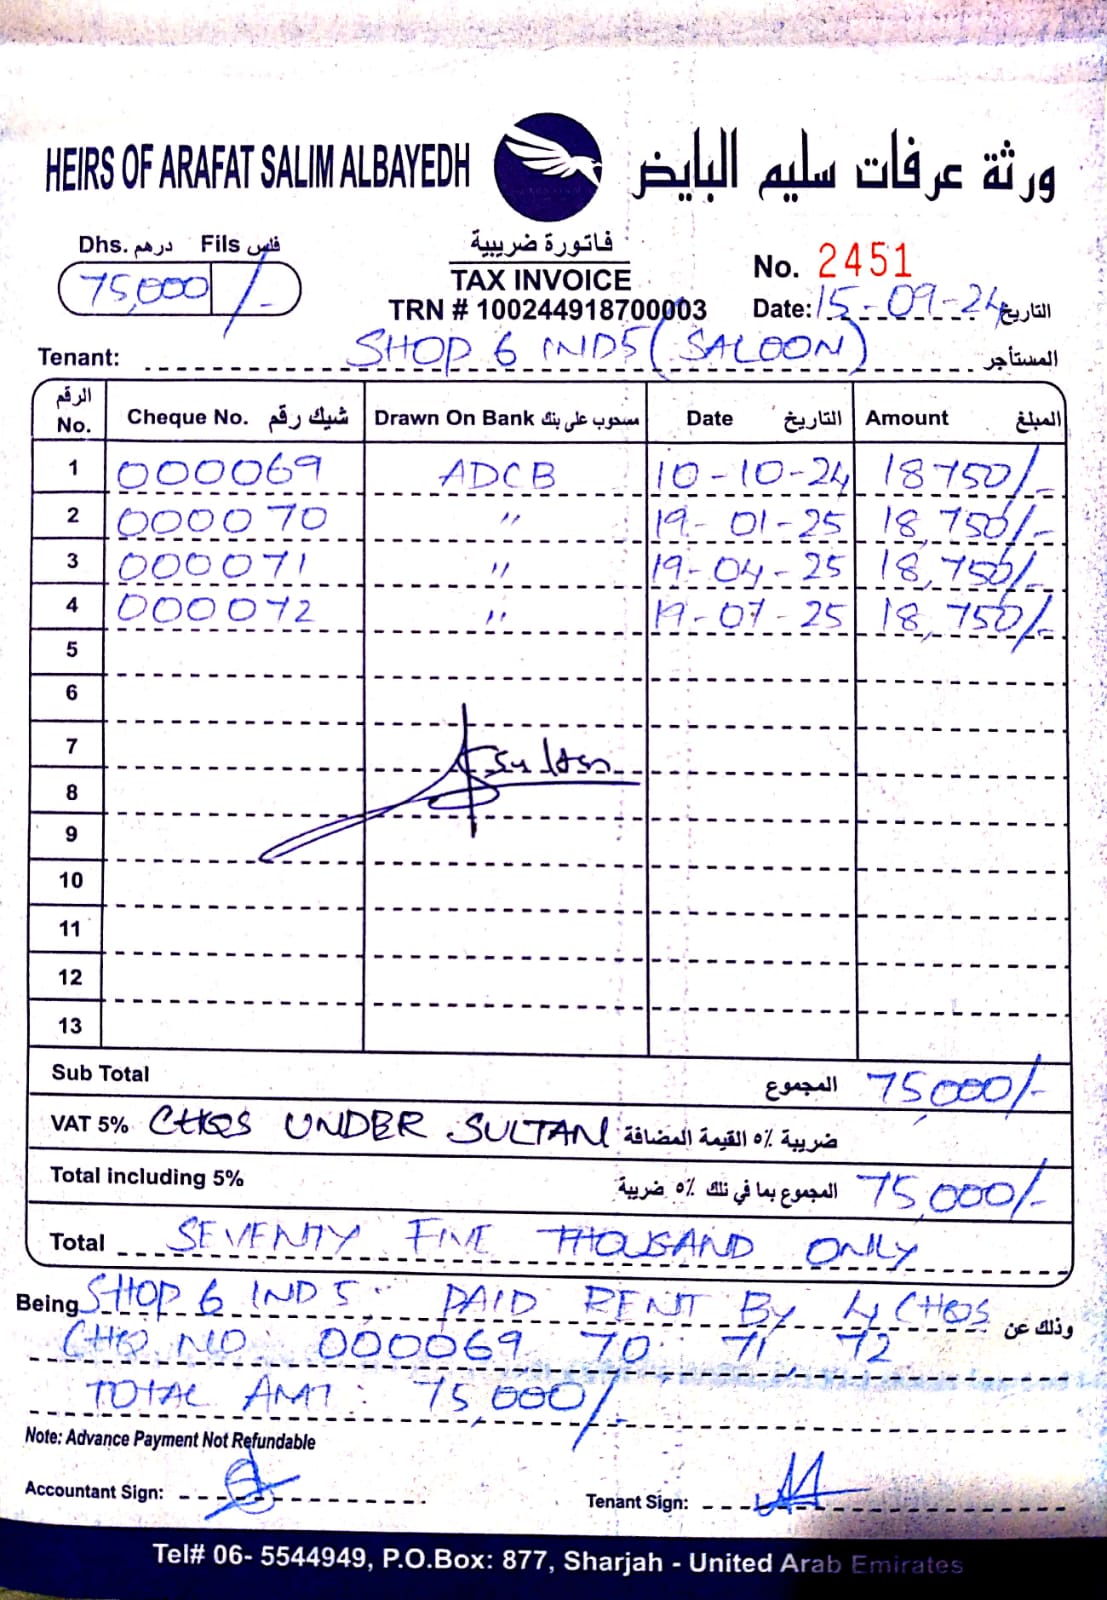 HEIRS OF ARAFAT SALIM ALBAYEDH ورثة عرفات سليم البايض
Dhs. درهم Fils فلس
75,000 /-
فاتورة ضريبية
TAX INVOICE
TRN # 100244918700003
No. 2451
Date: 15-09-24 التاريخ
Tenant: SHOP 6 IND5 (SALOON) المستأجر
الرقم No. Cheque No. شيك رقم Drawn On Bank مسحوب على بنك Date التاريخ Amount المبلغ
1 000069 ADCB 10-10-24 18750/-
2 000070 " 19-01-25 18,750/-
3 000071 " 19-04-25 18,750/-
4 000072 " 19-07-25 18,750/-
5
6
7
Sultan
8
9
10
11
12
13
Sub Total المجموع 75,000/-
VAT 5% CHQS UNDER SULTAN ضريبة ٥٪ القيمة المضافة
Total including 5% المجموع بما في ذلك ٥٪ ضريبة 75,000/-
Total SEVENTY FIVE THOUSAND ONLY
Being SHOP 6 IND 5: PAID RENT BY 4 CHQS وذلك عن
CHQ NO: 000069 70. 71, 72
TOTAL AMT: 75,000/-
Note: Advance Payment Not Refundable
Accountant Sign:
Tenant Sign:
Tel# 06- 5544949, P.O.Box: 877, Sharjah - United Arab Emirates